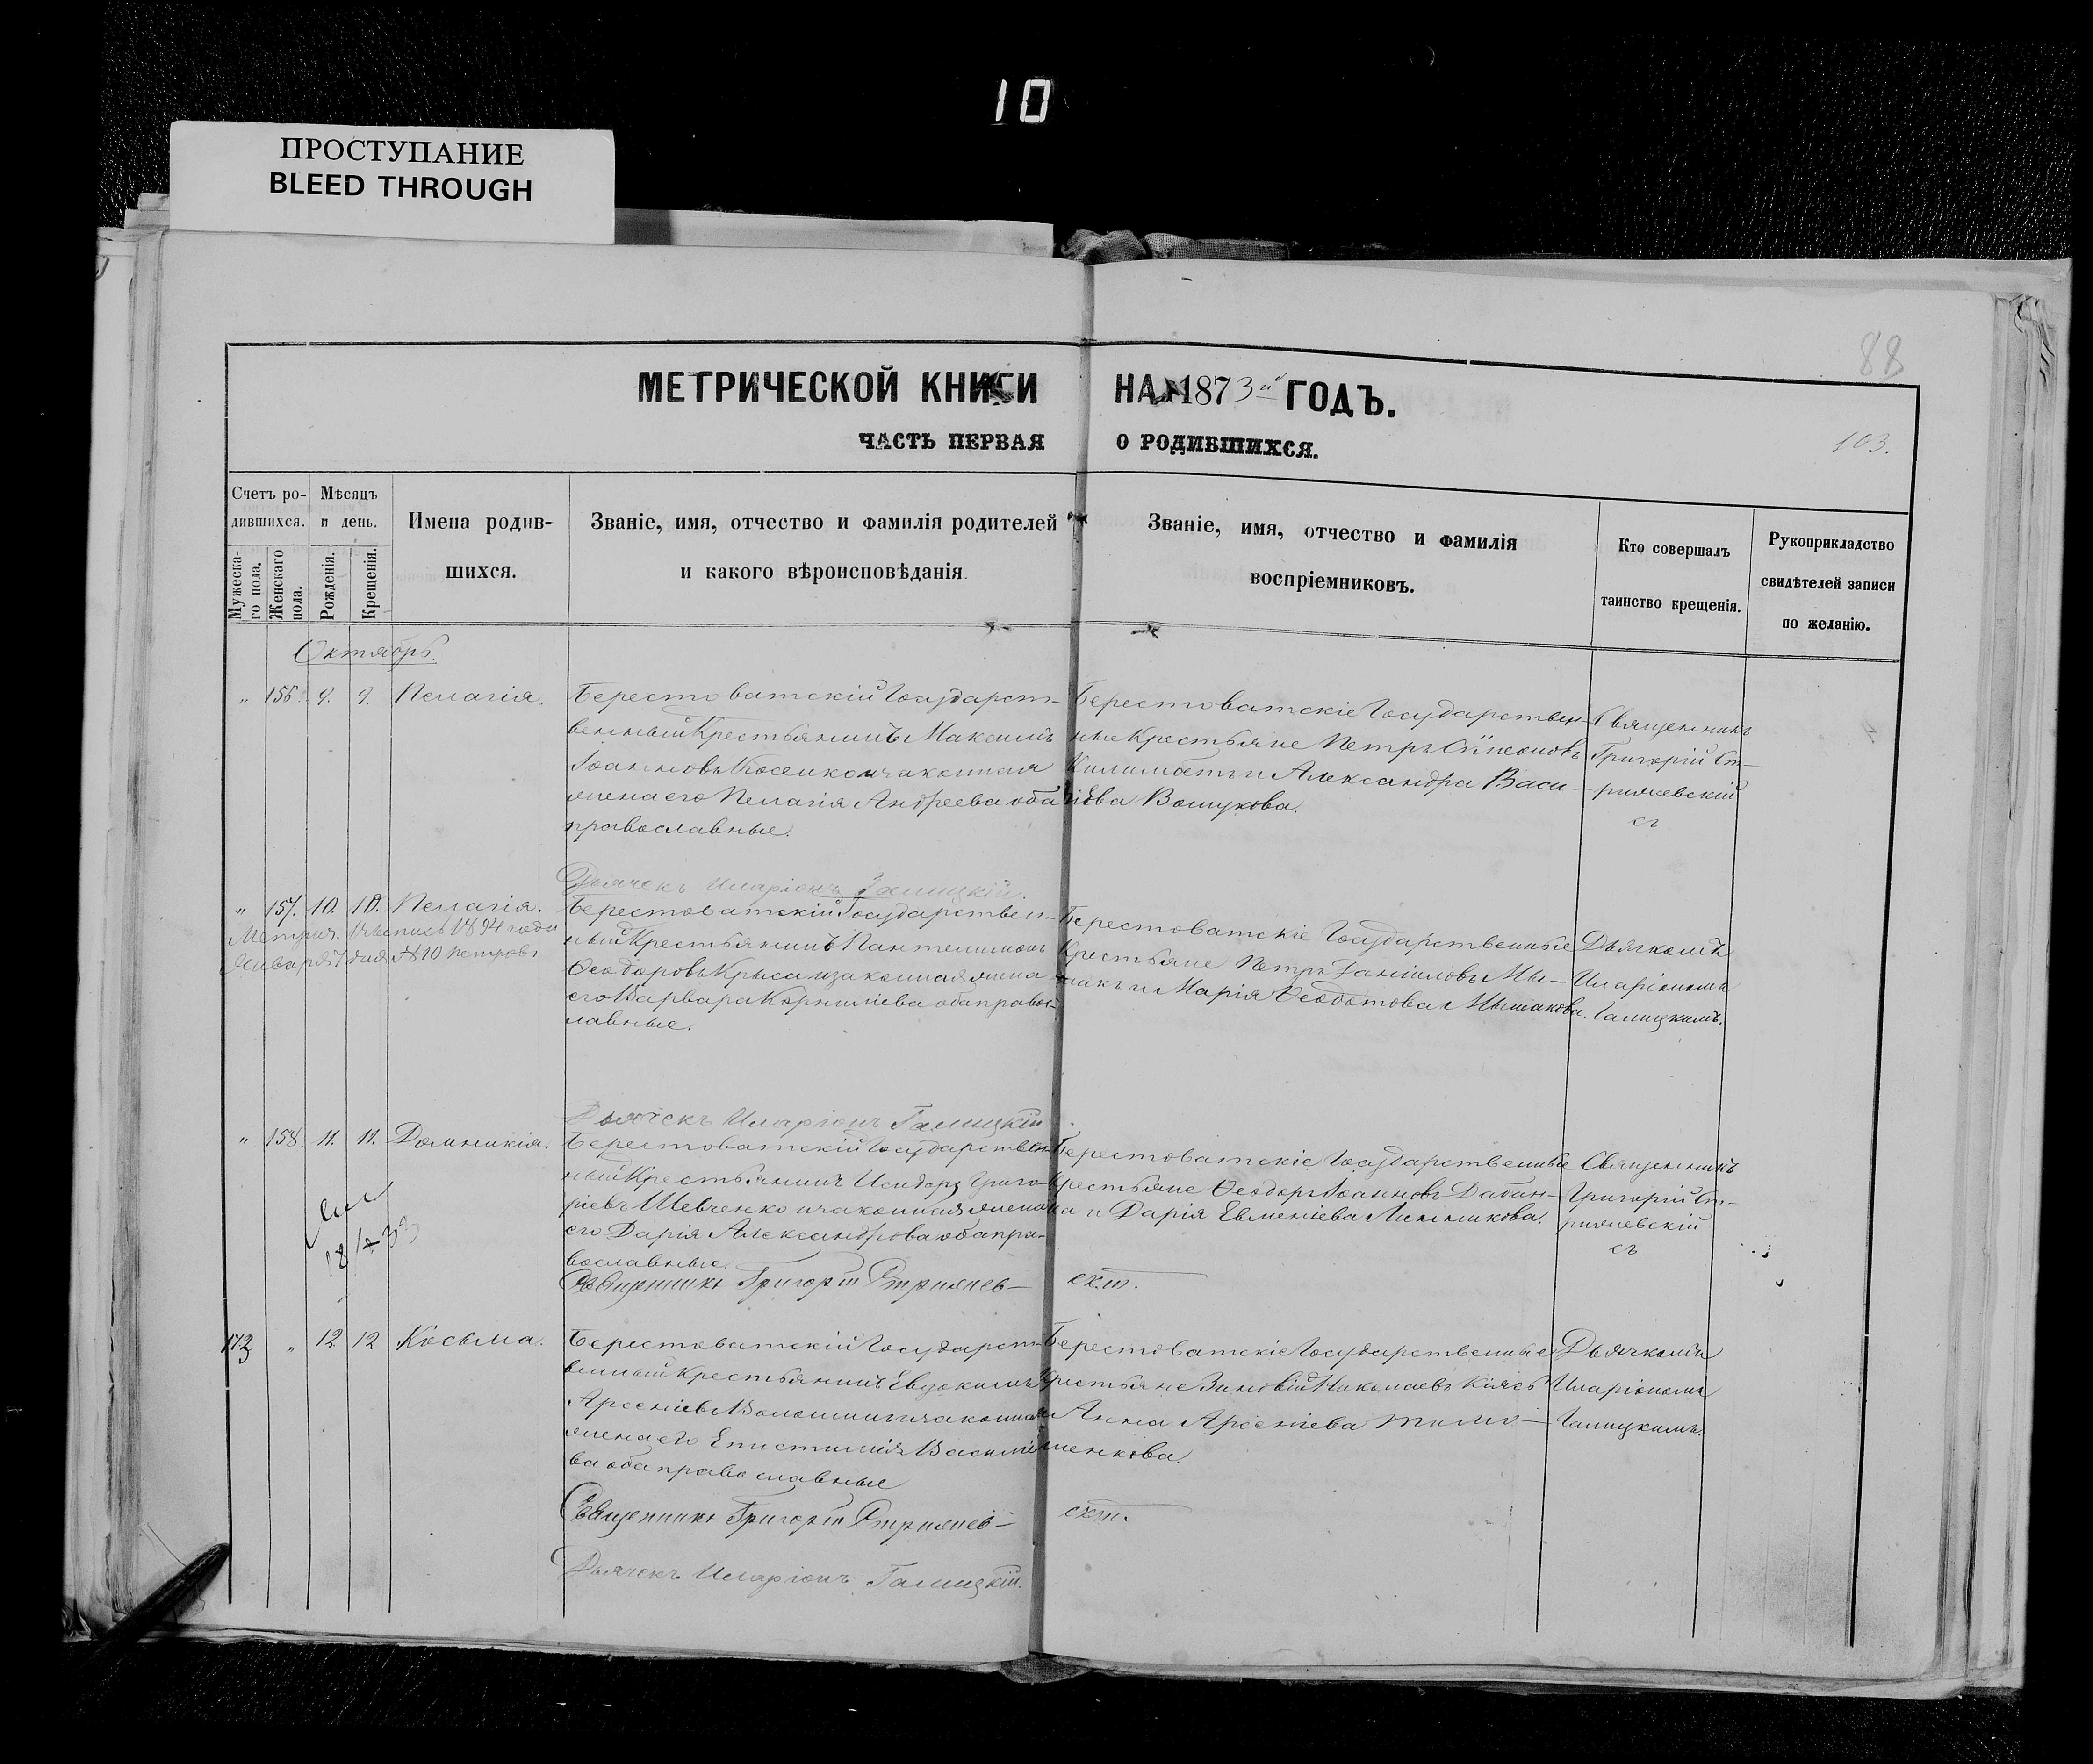 10
ПРОСТУПАНИЕ
BLEED THROUGH
88
МЕТРИЧЕСКОЙ КНИГИ НА 1873й ГОДЪ.
ЧАСТЬ ПЕРВАЯ О РОДИВШИХСЯ.
103.
Счетъ ро-
дившихся.
Мужеска-
го пола.
Женскаго
пола.
Мѣсяцъ
и день.
Рожденія.
Крещенія.
Имена родив-
шихся.
Званіе, имя, отчество и фамилія родителей
и какого вѣроисповѣданія
Званіе, имя, отчество и фамилія
воспріемниковъ.
Кто совершалъ
таинство крещенія.
Рукоприкладство
свидѣтелей записи
по желанію.
Октябрь.
" 156. 9. 9. Пелагія.
Берестоватскій Государст-
венный Крестьянинъ Максимъ
Іоанновъ Косенко и законная
жена его Пелагія Андреева оба
православные.
Берестоватскіе Государствен-
ные Крестьяне Петръ Симеоновъ
и Александра Васи-
ліева
Священникъ
Григорій Ст-
рижевскій
съ
Дьячекъ Иларіонъ Галицкій.
" 157. 10. 10. Пелагія.
1894 года
Января 7 дня № 10
Берестоватскій Государствен-
ный Крестьянинъ Пантелимонъ
Ѳеодоровъ Крыса и законная жена
его Варвара Корниліева оба правос-
лавные.
Берестоватскіе Государственные
Крестьяне Петръ Даніиловъ Мы-
и Марія Ѳеодотова
Дьячкомъ
Иларіономъ
Галицкимъ.
Дьячекъ Иларіонъ Галицкій
" 158. 11. 11. Домникія.
Берестоватскій Государствен-
ный Крестьянинъ Исидоръ Григо-
ріевъ Шевченко и законная жена
его Дарія Александрова оба пра-
вославные.
Берестоватскіе Государственные
Крестьяне Ѳеодоръ Іоанновъ
и Дарія Евменіева
Священникъ
Григорій Ст-
рижевскій
съ
Священникъ Григорій Стрижев- скій.
" 12. 12 Косьма.
Берестоватскій Государст-
венный Крестьянинъ Евдокимъ
Арсеніевъ Волошинъ и законная
жена его Епистимія Василіе-
ва оба православные
Берестоватскіе Государственные
Крестьяне Зиновій Николаевъ
Анна Арсеніева Тимо-
шенкова.
Дьячкомъ
Иларіономъ
Галицкимъ.
Священникъ Григорій Стрижев- скій.
Дьячекъ Иларіонъ Галицкій.